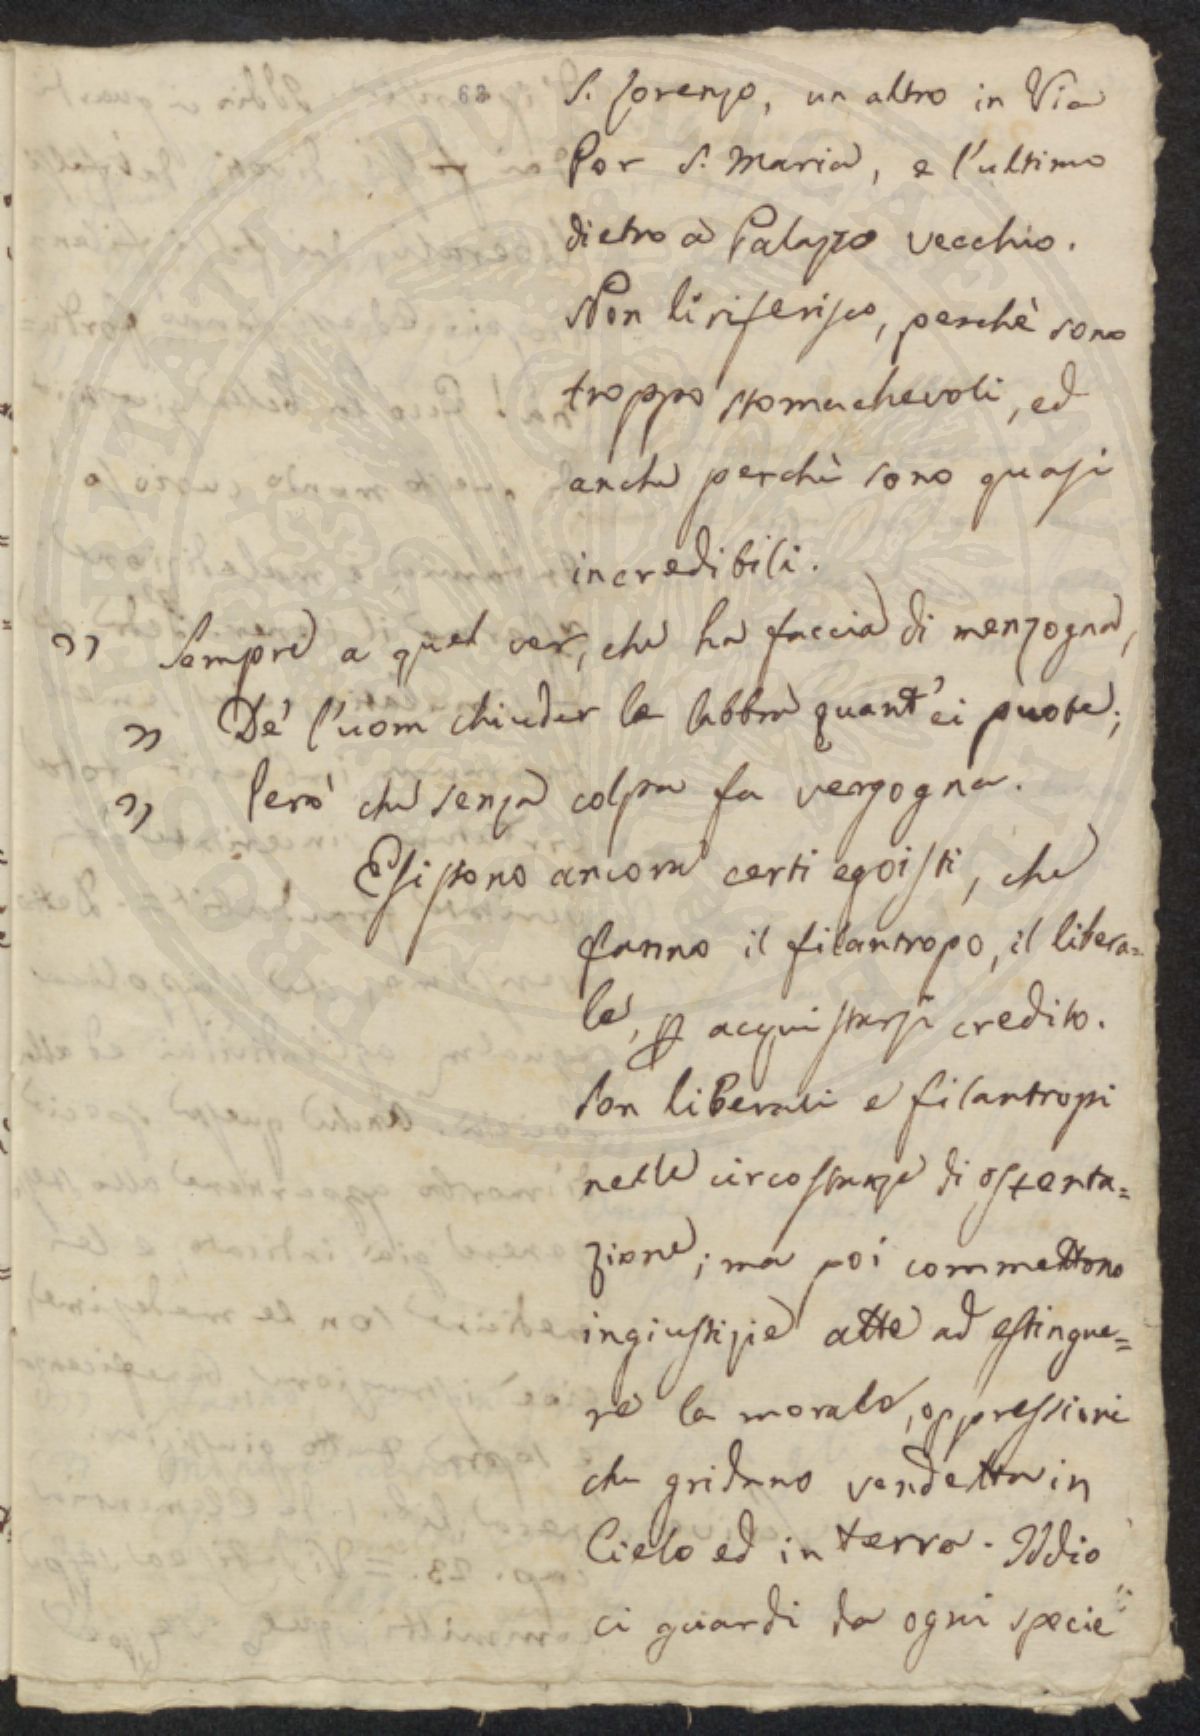 63
S. Lorenzo, un altro in Via
Por S. Maria, e l'ultimo
dietro a Palazzo vecchio.
Non li riferisco, perchè sono
troppo stomachevoli, ed
anche perchè sono quasi
incredibili.
" Sempre a quel ver, che ha faccia di menzogna,
" De' l'uom chiuder le labbra quant' ei puote;
" Però che senza colpa fa vergogna.
Esistono ancora certi egoisti, che
fanno il filantropo, il libera=
le, p acquistarsi credito.
Son liberali e filantropi
nelle circostanze di ostenta=
zione; ma poi commettono
ingiustizie atte ad estingue=
re la morale, oppressioni
che gridano vendetta in
Cielo ed in terra. Iddio
ci guardi da ogni specie